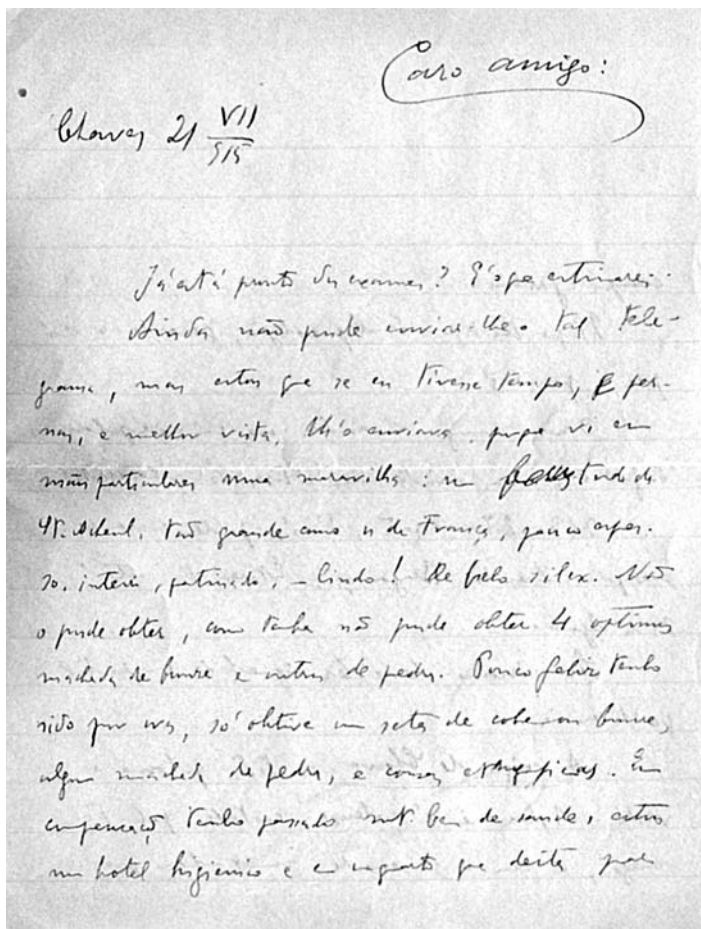 Caro amigo:
Chaves 21 VII
915
Já está pronto dos exames? É o que estimarei.
Ainda não pude enviar-lhe o tal tele-
grama, mas estou que se eu tivesse tempo, e per-
nas, e melhor vista, lh'o enviava, porque vi em
mãos particulares uma maravilha: um de
St. Acheul, tão grande como os de França, pouco espes-
so, inteiro, patinado, - lindo! De belo silex. Não
o pude obter, como tambem não pude obter 4 optimos
machados de bronze e outros de pedra. Pouco feliz tenho
sido por ora, só obtive uma seta de cobre ou bronze,
alguns machados de pedra, e cousas ethnograficas. Em
compensação tenho passado muito bem de saude, estou
num hotel higienico e em quarto que deita para